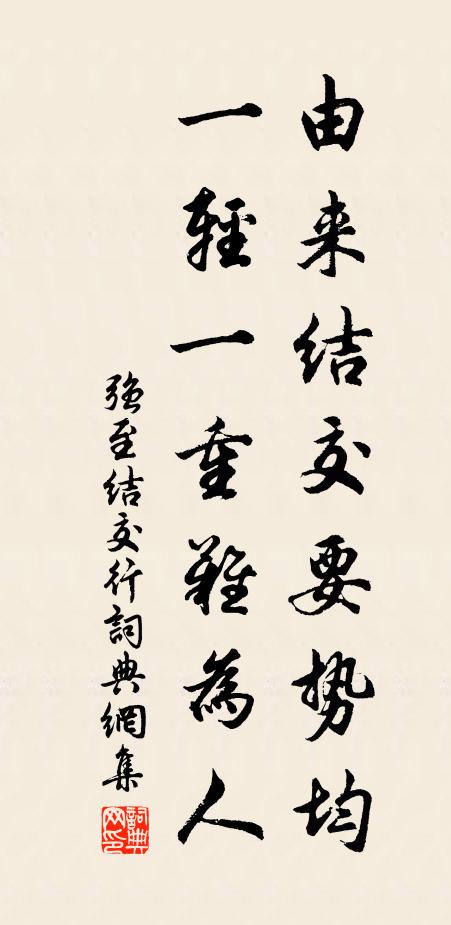 由来结交要势均
一輕一重難為人
強至结交行詞典網集
詞典網印